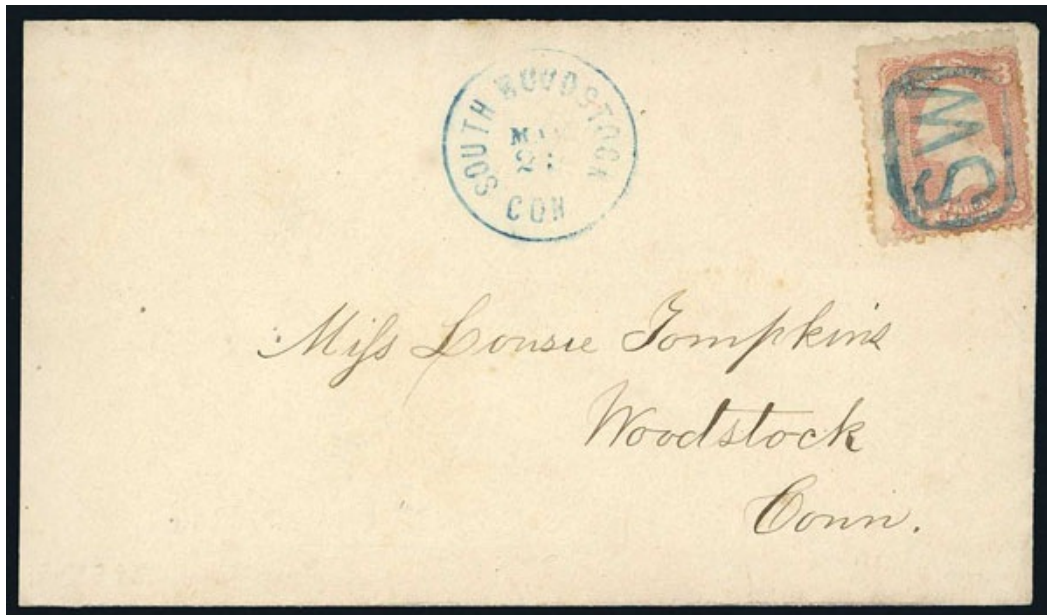 SOUTH WOODSTOCK
CON
SW
3
Miſs Lousie Tompkins
Woodstock
Conn.